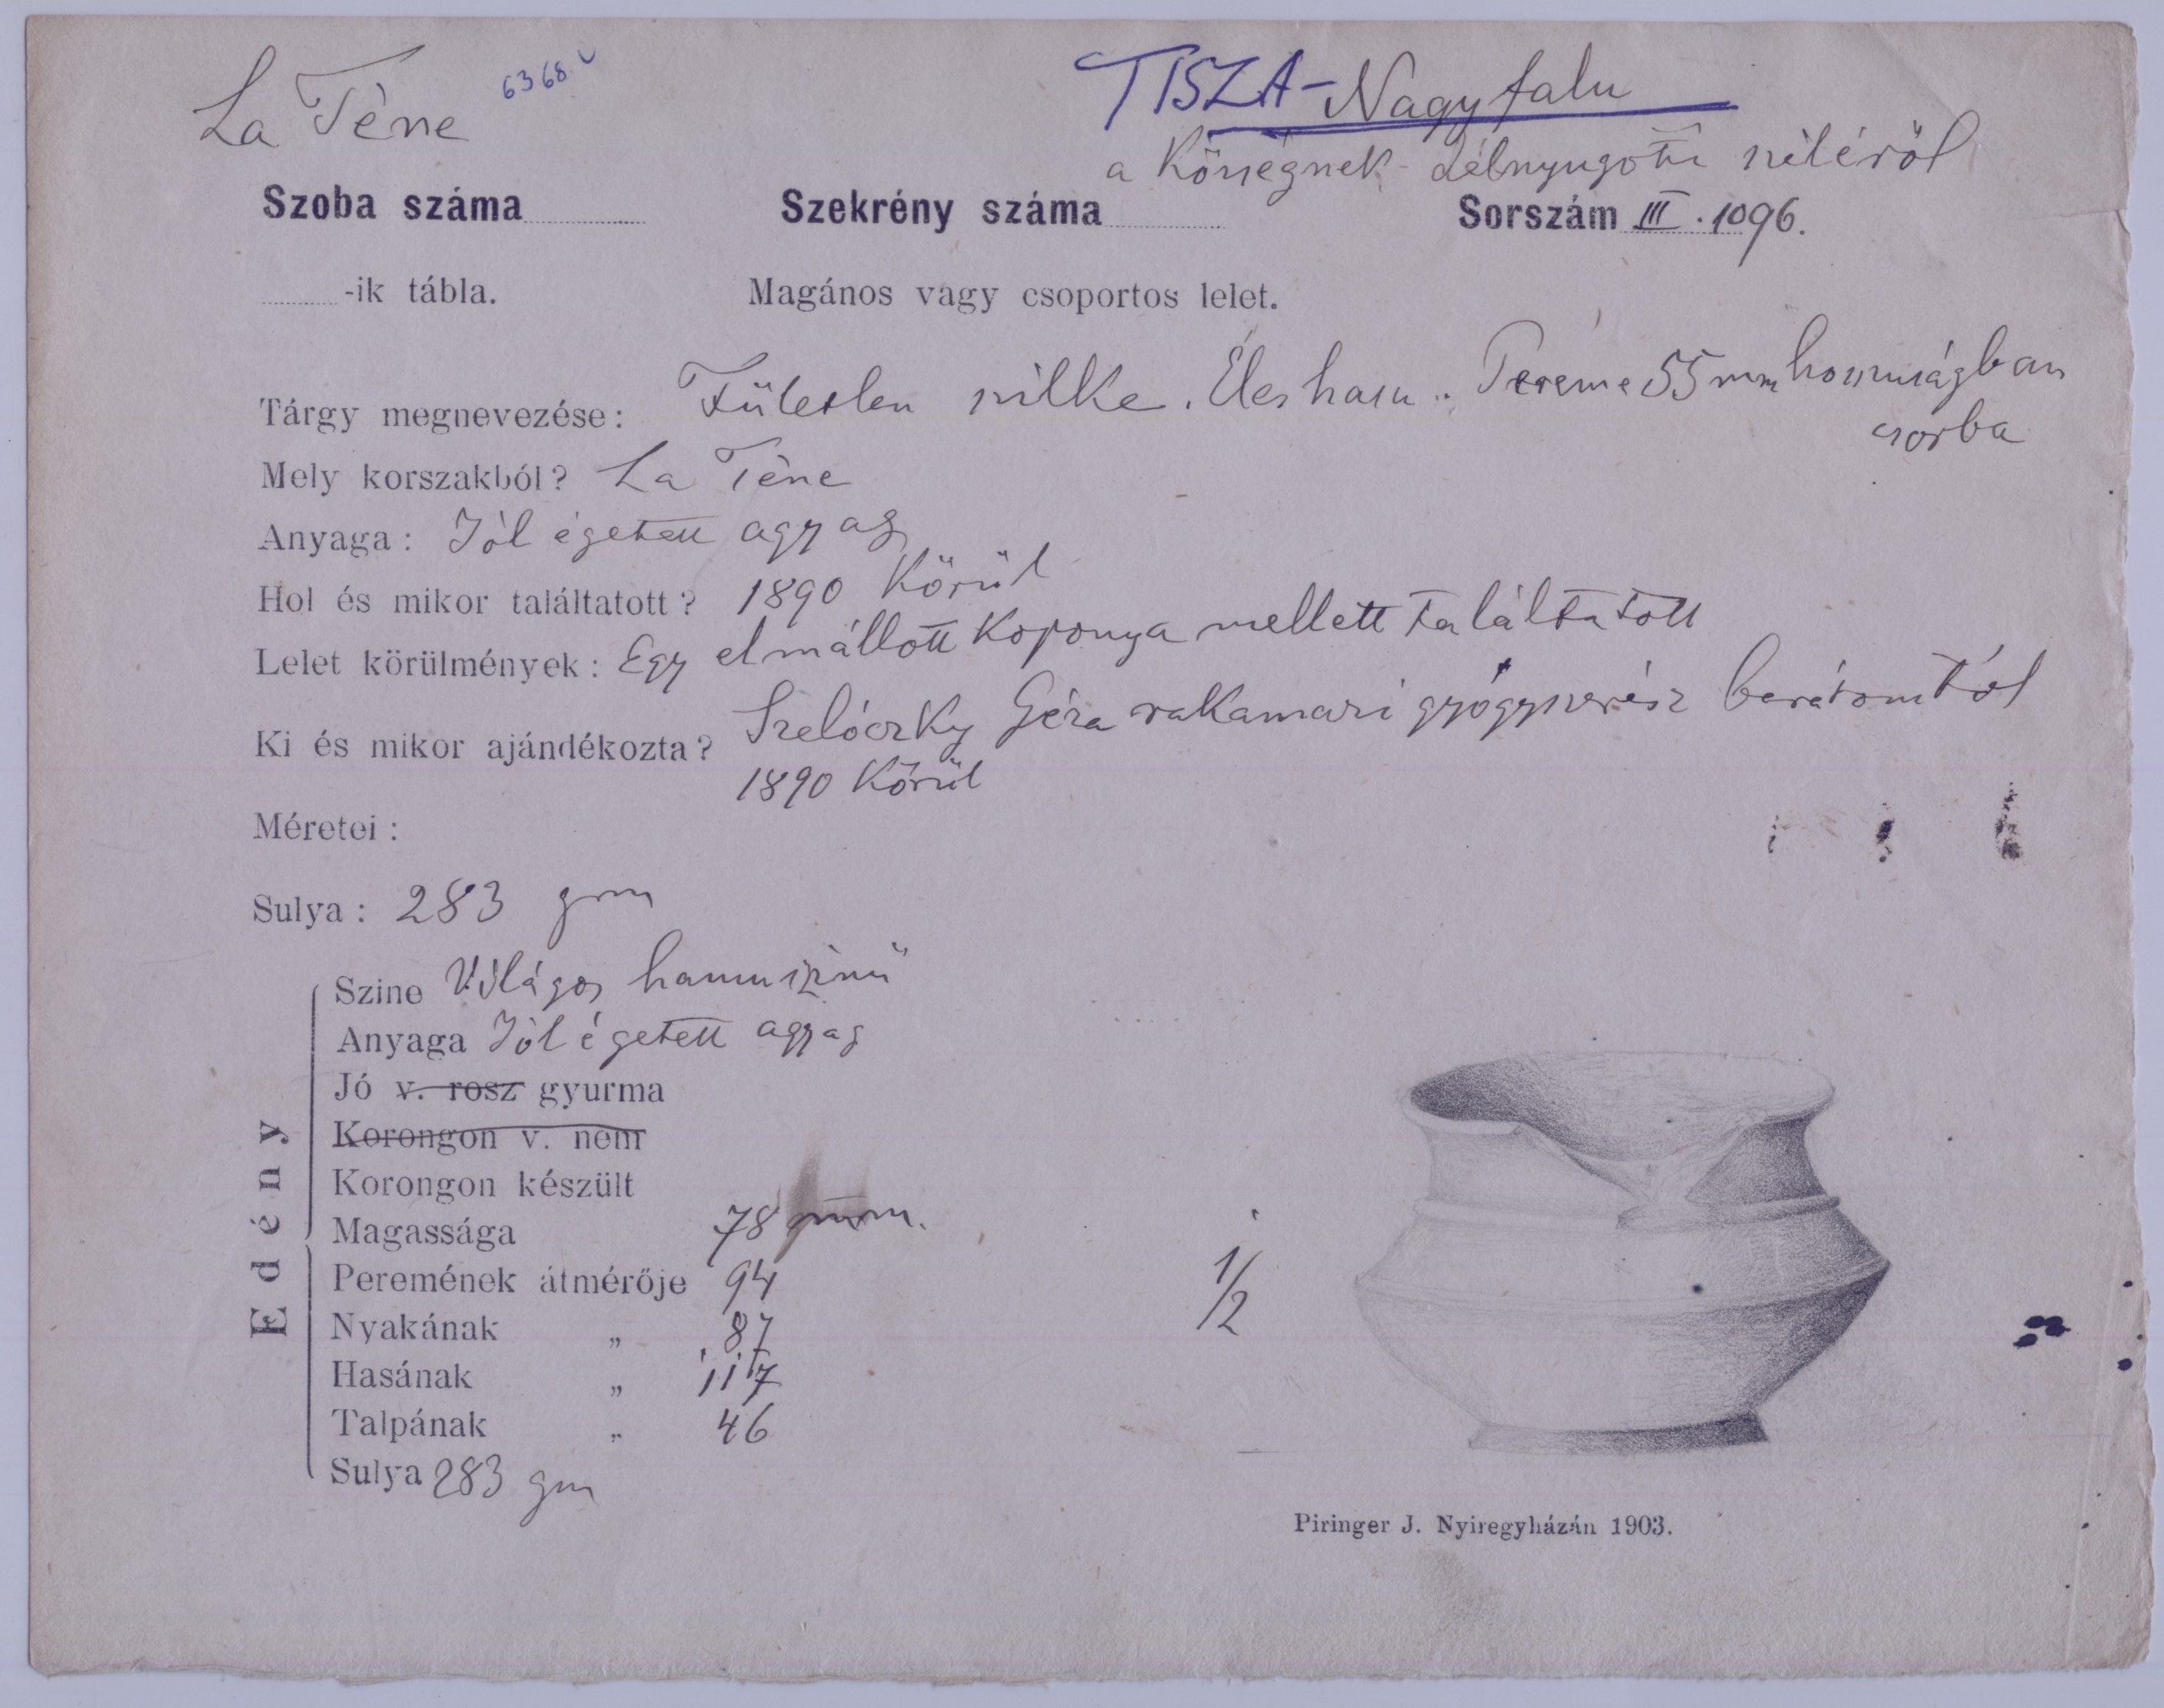 La Tène
6368
TISZA-Nagyfalu
a Községnek délnyugoti széléröl
Szoba száma
Szekrény száma
Sorszám III. 1096.
-ik tábla.
Magános vagy csoportos lelet.
Tárgy megnevezése: Fületlen szilke. Éles hasu. Pereme 55 mm hosszuságban
csorba
Mely korszakból? La Tène
Anyaga: Jól égetett agyag
Hol és mikor találtatott? 1890 Körül
Lelet körülmények: Egy elmállott Koponya mellett találtatott
Ki és mikor ajándékozta? Szelóczky Géza rakamazi gyógyszerész barátomtól
1890 Körül
Méretei:
Sulya: 283 gm
Edény
Szine Világos hamuszinü
Anyaga Jól égetett agyag
Jó v. rosz gyurma
Korongon v. nem
Korongon készült
Magassága 78 mm.
Peremének átmérője 94
Nyakának „ 87
Hasának „ 117
Talpának „ 46
Sulya 283 gm
1/2
Piringer J. Nyiregyházán 1903.